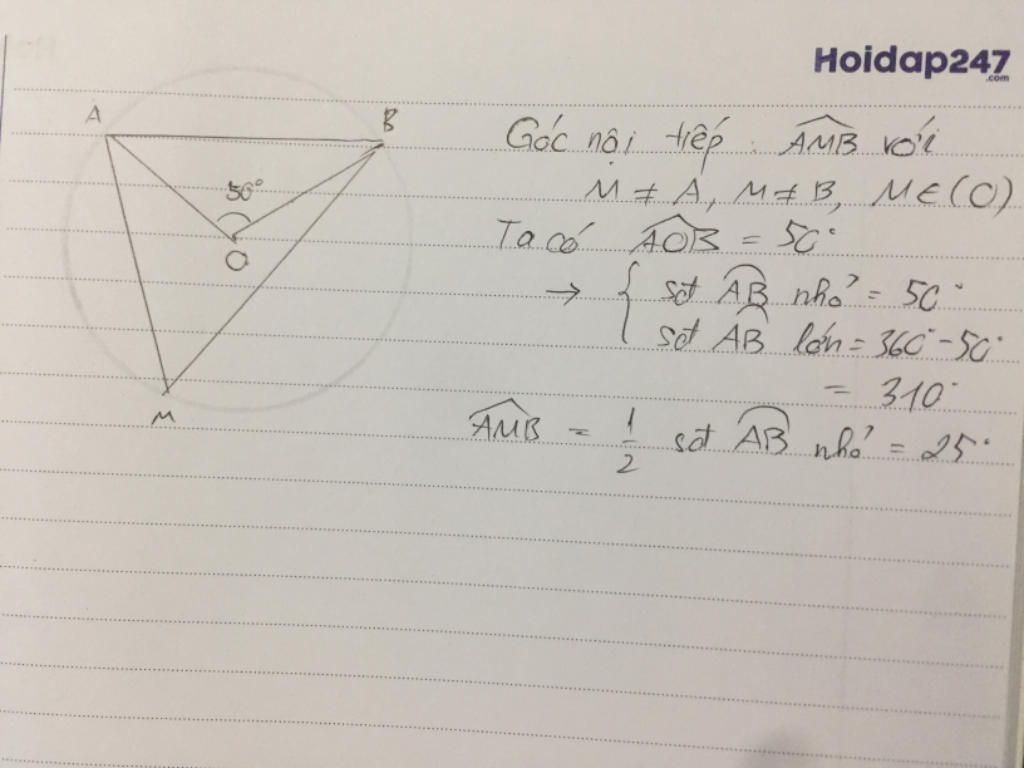 Hoidap247
.com
A
B
50°
O
M
Góc nội tiếp : AMB với
M ≠ A, M ≠ B, M ∈ (O)
Ta có AOB = 50°
→ { sđ AB nhỏ = 50°
sđ AB lớn = 360° - 50°
= 310°
AMB = 1/2 sđ AB nhỏ = 25°